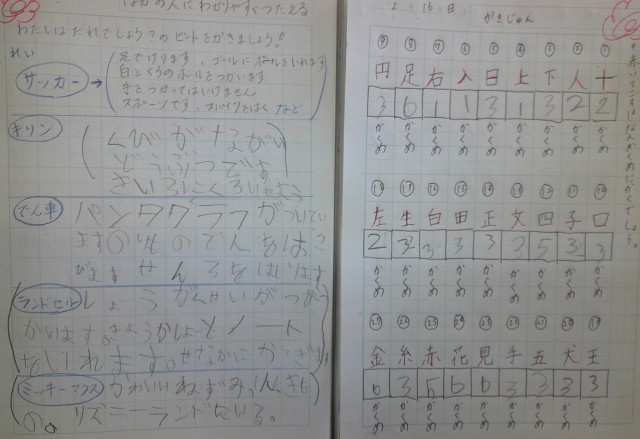 ほかの人にわかりやすくつたえる
わたしはだれでしょう？のヒントをかきましょう！
れい
サッカー → 足でけります。ゴールにボールをいれます
白とくろのボールをつかいます
手をつかってはいけません
スポーツです。スパイクをはく など
キリン
くびがながい
どうぶつです
きいろにくろい
でん車 パンタグラフがついてい
ます
せんろをはしります
ランドセル しょうがくせいがつかう
きょうかしょとノート
をいれます。せなかに
ミッキーマウス かわいいねずみ。にんきも
の。リズニーランドにいる。
2 16日 かきじゅん
赤いところはなんかくめでしょう。
⑨ ⑧ ⑦ ⑥ ⑤ ④ ③ ② ①
円 足 右 入 日 上 下 人 十
3 6 1 1 3 1 3 2 2
かくめ かくめ かくめ かくめ かくめ かくめ かくめ かくめ かくめ
⑱ ⑰ ⑯ ⑮ ⑭ ⑬ ⑫ ⑪ ⑩
左 生 白 田 正 文 四 子 口
2 3 3 3 3 3 5 3 3
かくめ かくめ かくめ かくめ かくめ かくめ かくめ かくめ かくめ
㉗ ㉖ ㉕ ㉔ ㉓ ㉒ ㉑ ⑳ ⑲
金 糸 赤 花 見 手 五 犬 王
6 3 5 6 6 3 3 3 3
かくめ かくめ かくめ かくめ かくめ かくめ かくめ かくめ かくめ